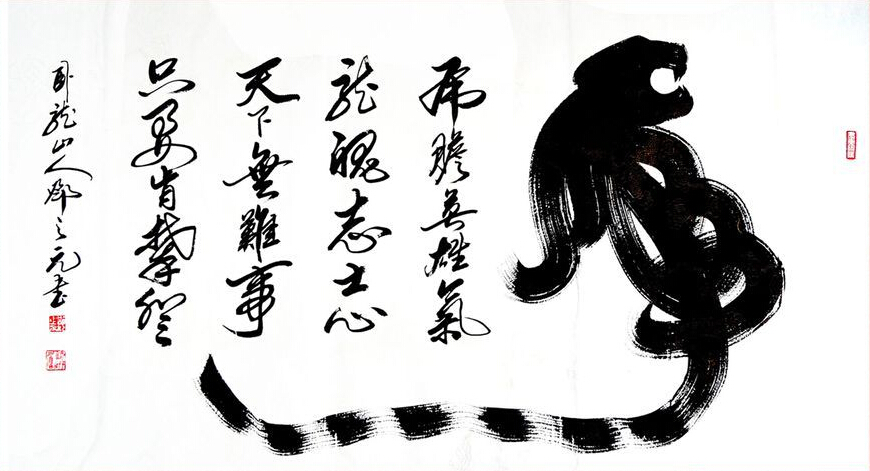 虎
虎膽英雄氣
龍魂志士心
天下無難事
只要肯攀登
臥龍山人鄧之元書